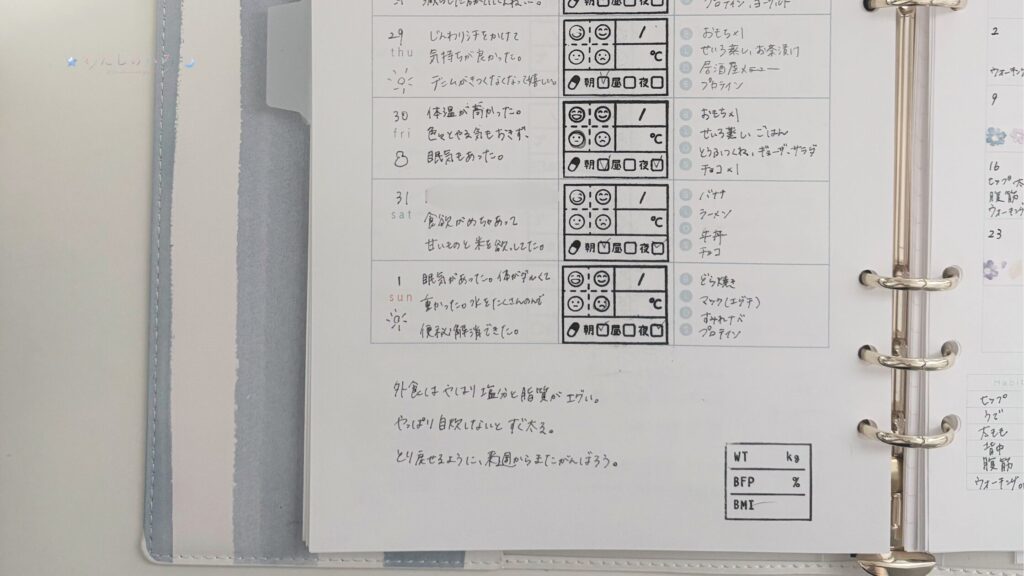 プロテイン、ヨーグルト
29 じんわり汗をかけて
thu 気持ちが良かった。
デニムがきつくなくなって嬉しい。
/
℃
朝 昼 夜
おもち×1
せいろ蒸し、お茶漬け
居酒屋メニュー
プロテイン
30 体温が高かった。
fri
眠気もあった。
/
℃
朝 昼 夜
おもち×1
せいろ蒸し ごはん
とうふつくね、ギョーザ、サラダ
チョコ×1
31
sat 食欲がめちゃあって
甘いものと米を欲してた。
/
℃
朝 昼 夜
バナナ
ラーメン
牛丼
チョコ
1 眠気があった。体がダルくて
sun 重かった。水をたくさんのんで
便秘解消できた。
/
℃
朝 昼 夜
どら焼き
マック(エグチ)
プロテイン
外食はやはり塩分と脂質がエグい。
やっぱり自炊しないとすぐ太る。
とり戻せるように、来週からまたがんばろう。
WT kg
BFP %
BMI
2
ウォーキング
9
16
ヒップ
腹筋
ウォーキン
23
Habit
ヒップ
うで
太もも
背中
腹筋
ウォーキング